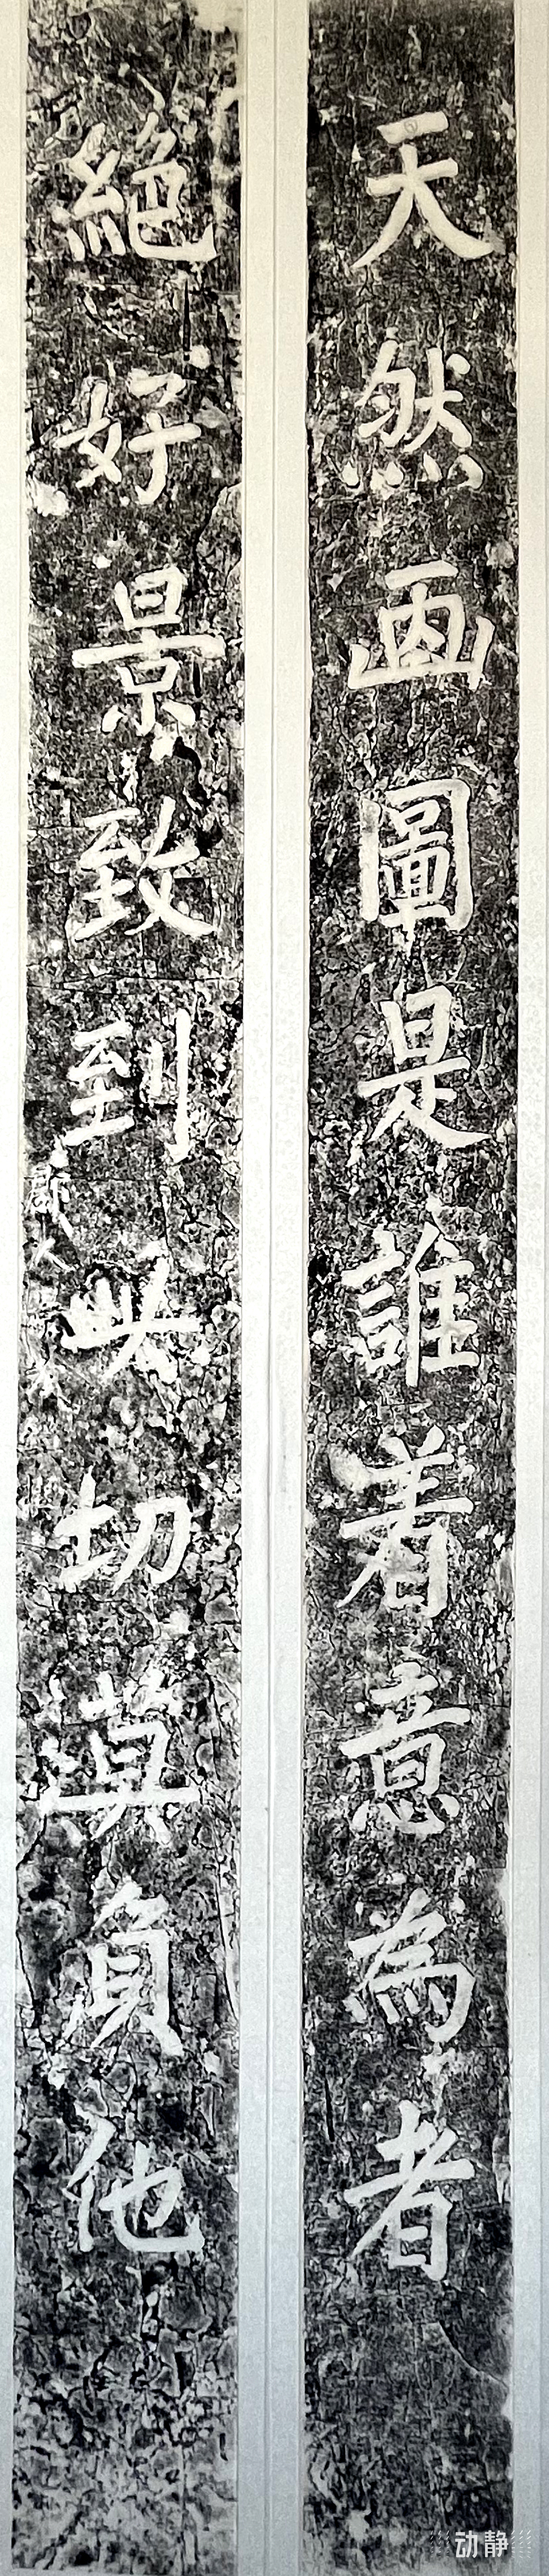 天然画圖是誰着意為者
絕好景致到此切莫負他
动静